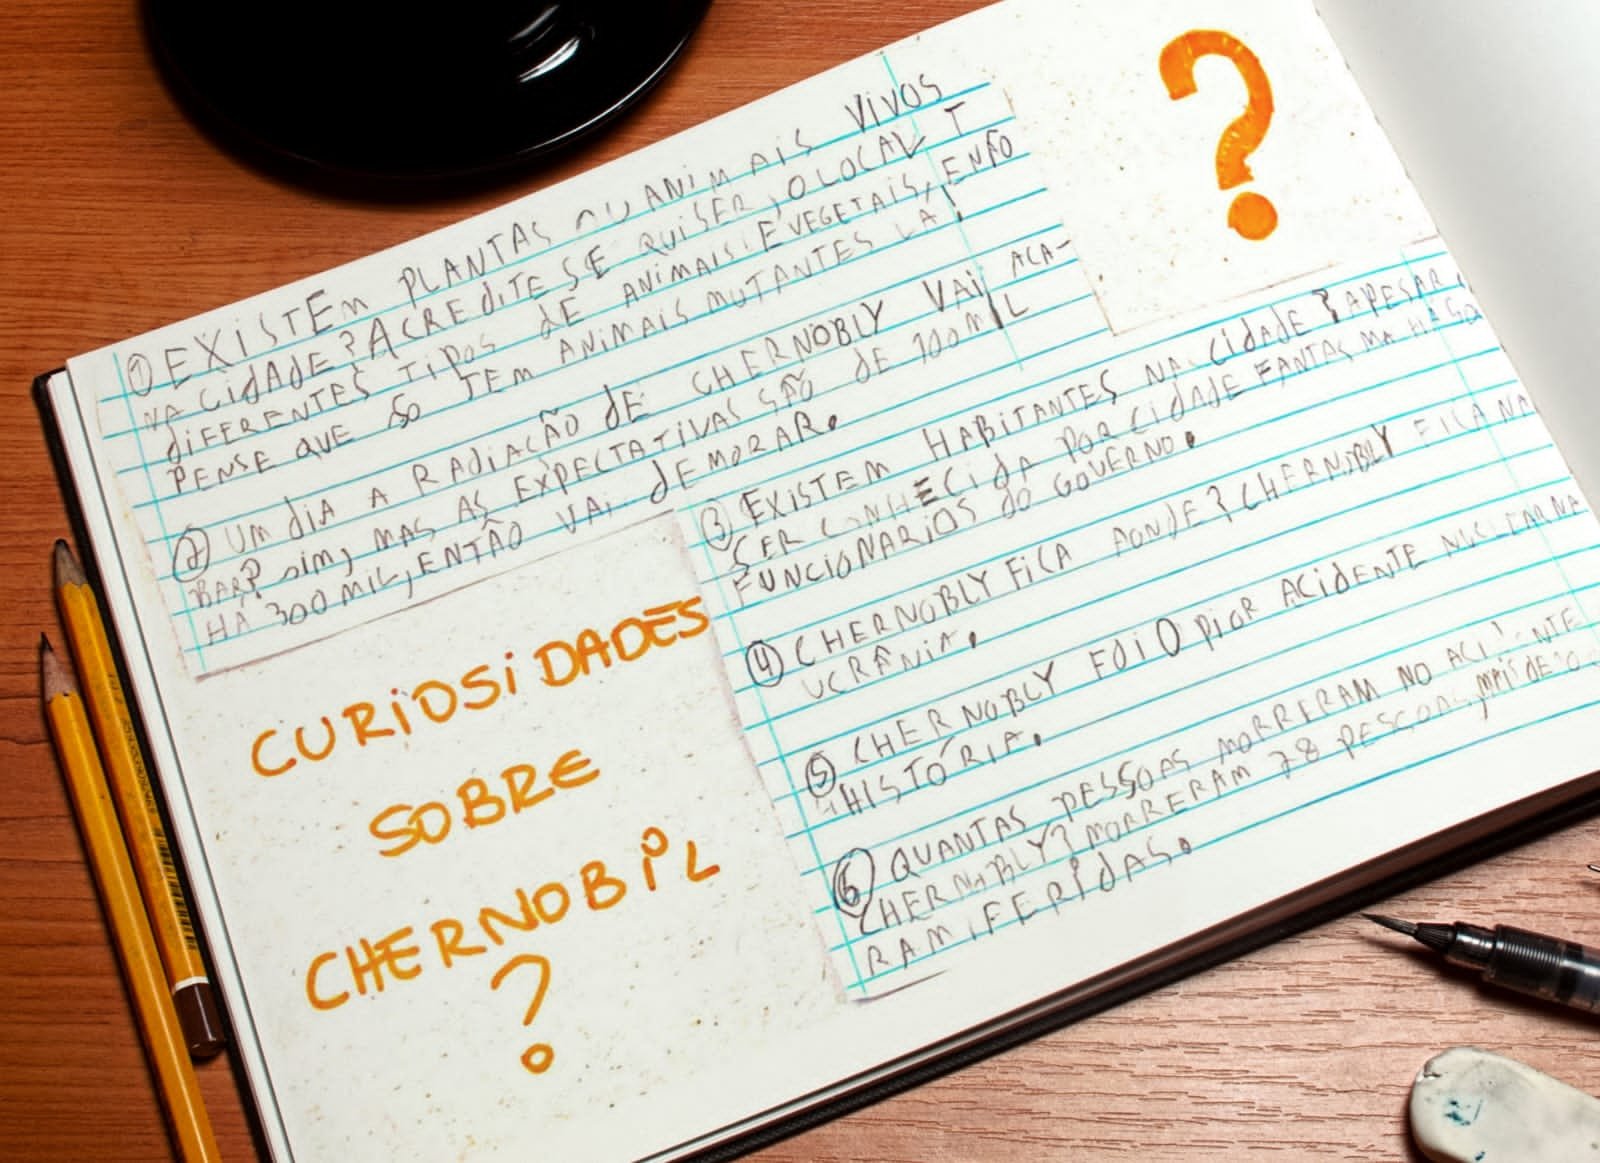 ① EXISTEM PLANTAS OU ANIMAIS VIVOS
NA CIDADE? ACREDITE SE QUISER, O LOCAL T
DIFERENTES TIPOS DE ANIMAIS E VEGETAIS, E NÃO
PENSE QUE SO TEM ANIMAIS MUTANTES LA!
② UM DIA A RADIAÇÃO DE CHERNOBLY VAI ACA-
BAR? SIM, MAS AS EXPECTATIVAS SÃO DE 100 MIL
HÁ 300 MIL, ENTÃO VAI DEMORAR.
③ EXISTEM HABITANTES NA CIDADE? APESAR
SER CONHECIDA POR CIDADE FANTASMA HÁ
FUNCIONARIOS DO GOVERNO.
④ CHERNOBLY FICA AONDE? CHERNOBLY FICA NA
UCRÂNIA.
⑤ CHERNOBLY FOI O PIOR ACIDENTE NUCLEAR NA
HISTÓRIA.
⑥ QUANTAS PESSOAS MORRERAM NO ACIDENTE
CHERNOBLY? MORRERAM 28 PESSOAS, MAIS DE
RAM FERIDAS.
CURIOSIDADES
SOBRE
CHERNOBIL
?
?